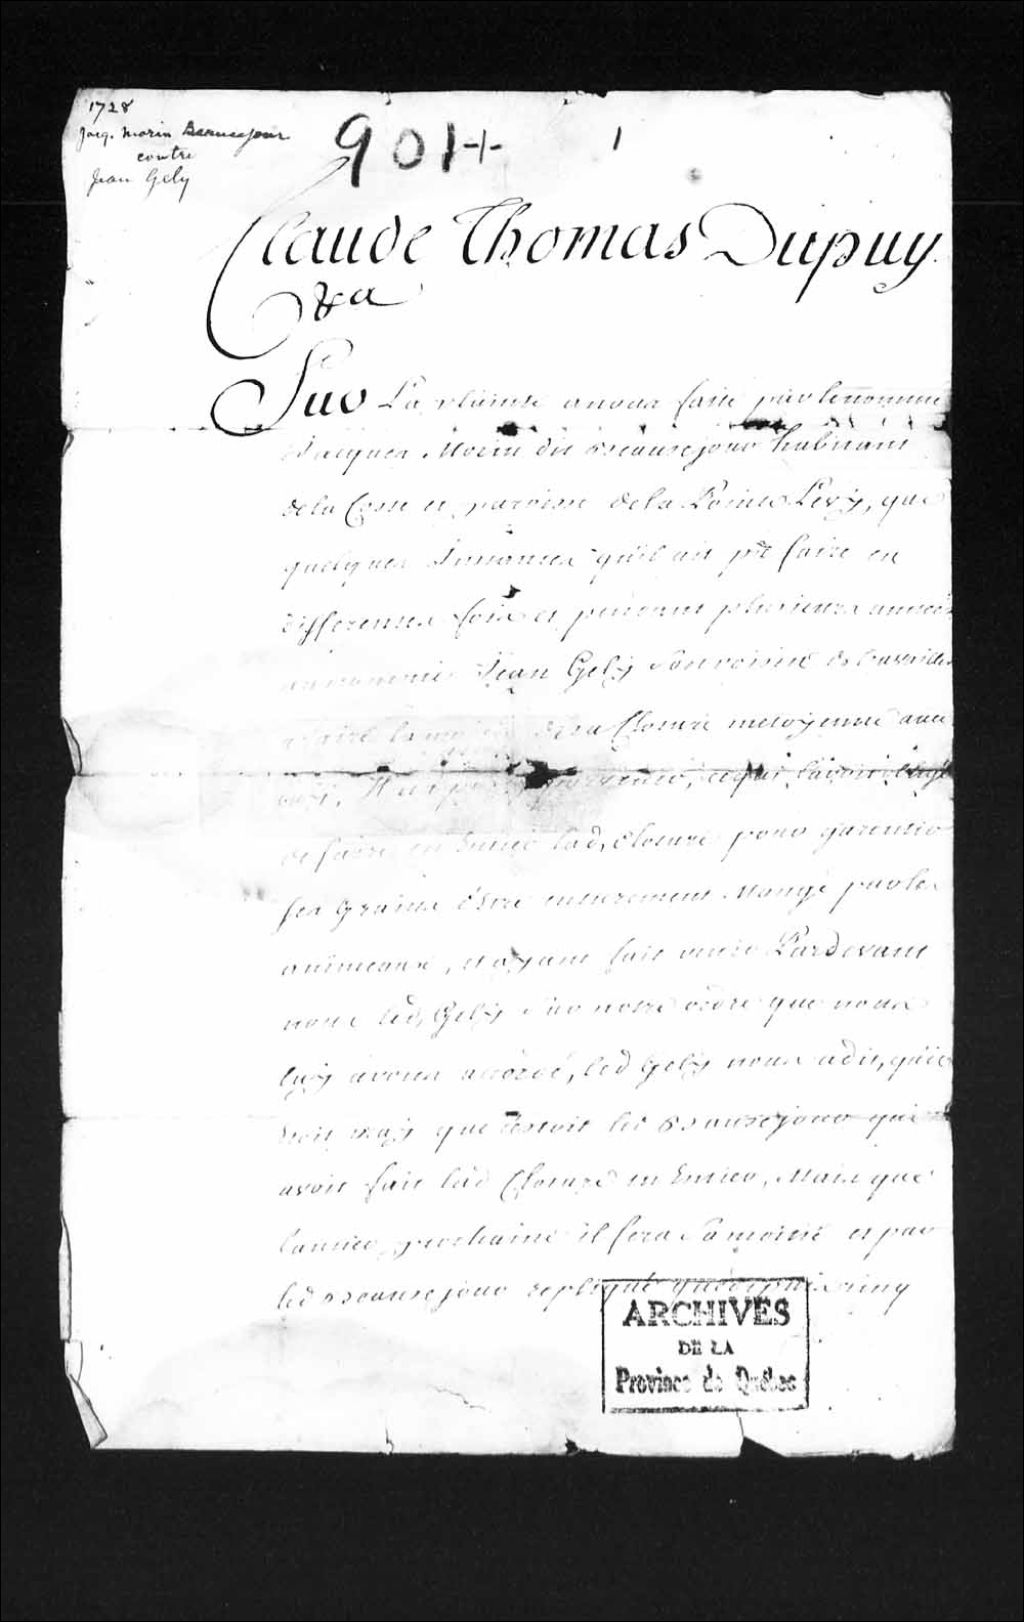 1728
Jacq. Morin Beausejour
contre
Jean Gely
901+ 1
Claude Thomas Dupuy
&ca
Sur La plainte a nous faite par le nomme
Jacques Morin dit Beausejour habitant
de la Coste et paroisse de la Pointe Levy, que
quelques Instances qu'il ait pû faire en
differentes fois et pendant plusieurs années
au nommé Jean Gely son voisin de
faire la moitié de sa Closture metoyenne avec
luy, Il n'a pû y parvenir, ce qui l'auroit obligé
de faire en Entier lad, Closture pour garentir
ses grains d'estre entierement Mangé par les
animeaux, et ayant fait venir Pardevant
nous led, Gely Sur notre ordre que nous
luy avons accordé, led Gely nous a dit, qu'il
Etoit vray que c'estoit led Beausejour qui
avoit fait lad Closture en Entier, Mais que
l'année prochaine il fera Sa moitié et par
led Beausejour repliqué que depuis cinq
ARCHIVES
DE LA
Province de Québec